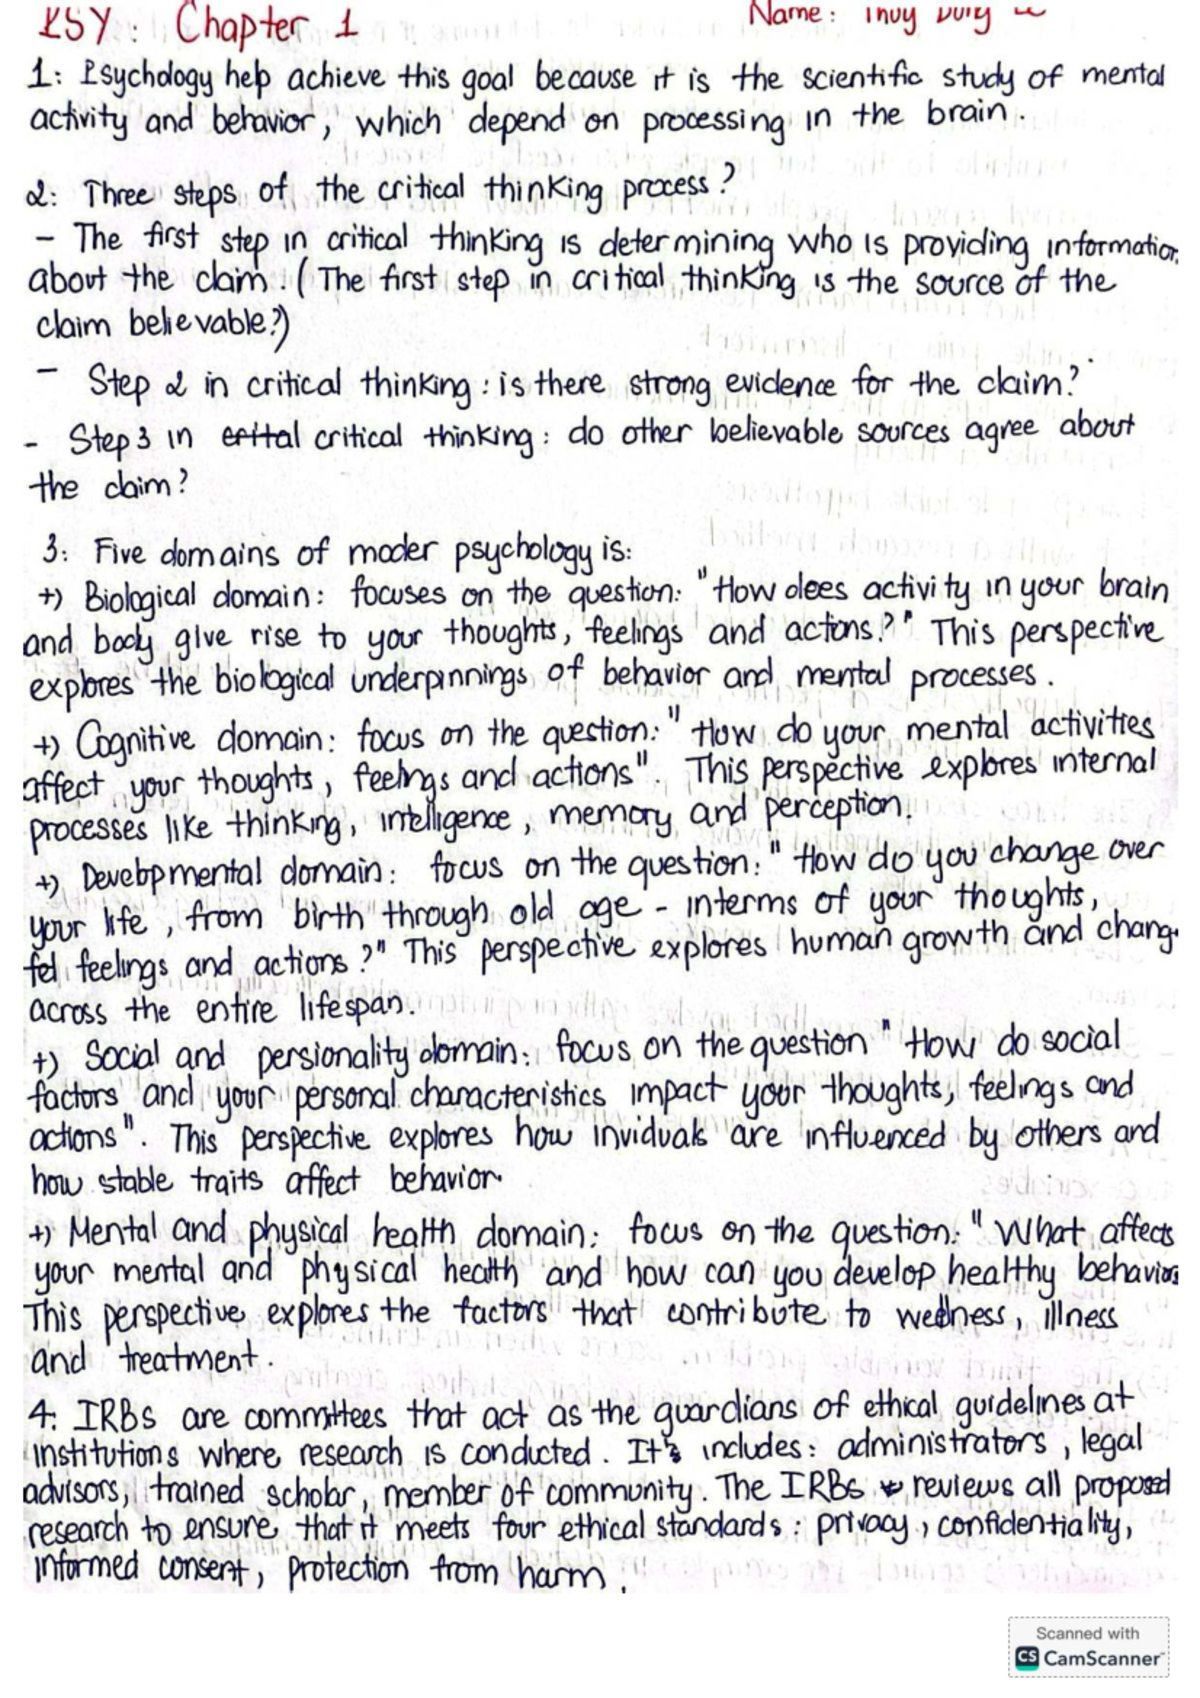 PSY: Chapter 1 Name: Thuy
1: Psychology help achieve this goal because it is the scientific study of mental
activity and behavior, which depend on processing in the brain.
2: Three steps of the critical thinking process?
- The first step in critical thinking is determining who is providing information
about the claim. (The first step in critical thinking is the source of the
claim believable?)
- Step 2 in critical thinking: is there strong evidence for the claim?
- Step 3 in crital critical thinking: do other believable sources agree about
the claim?
3: Five domains of moder psychology is:
+) Biological domain: focuses on the question: "How does activity in your brain
and body give rise to your thoughts, feelings and actions?" This perspective
explores the biological underpinnings of behavior and mental processes.
+) Cognitive domain: focus on the question: "How do your mental activities
affect your thoughts, feelings and actions". This perspective explores internal
processes like thinking, intelligence, memory and perception.
+) Developmental domain: focus on the question: "How do you change over
your life, from birth through old age - interms of your thoughts,
fel feelings and actions?" This perspective explores human growth and chang
across the entire lifespan.
+) Social and persionality domain: focus on the question "How do social
factors and your personal characteristics impact your thoughts, feelings and
actions". This perspective explores how inviduals are influenced by others and
how stable traits affect behavior.
+) Mental and physical health domain: focus on the question: "What affects
your mental and physical health and how can you develop healthy behaviors
This perspective explores the factors that contribute to wellness, illness
and treatment.
4: IRBs are committees that act as the guardians of ethical guidelines at
institutions where research is conducted. It's includes: administrators, legal
advisors, trained scholar, member of community. The IRBs reviews all proposed
research to ensure that it meets four ethical standards: privacy, confidentiality,
informed consent, protection from harm.
Scanned with
CS CamScanner